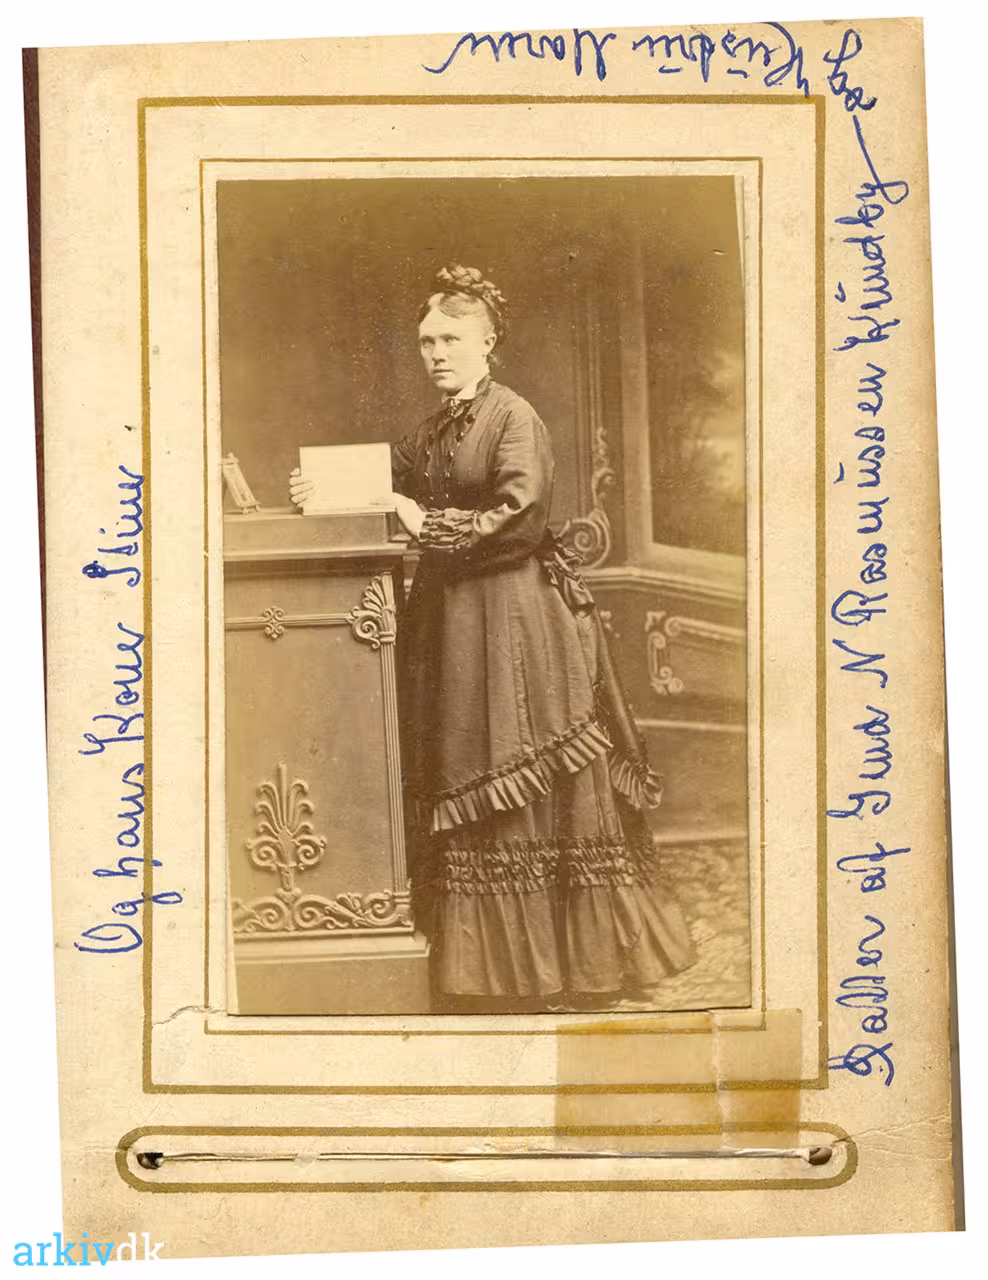 Maren
Datter af Gmd N Rasmussen Kundby —
Og hans Kone Stine.
arkivdk